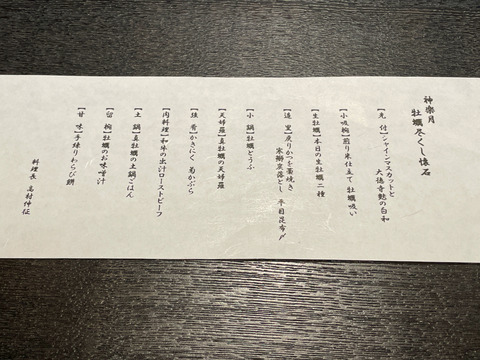 神楽月
牡蠣尽くし懐石
【先 付】シャインマスカットと
大徳寺麩の白和
【小吸椀】煎り米仕立て 牡蠣吸い
【生牡蠣】本日の生牡蠣二種
【造 里】戻りかつを藁焼き
寒鰤炙落とし 平目昆布〆
【小 鍋】牡蠣どうふ
【天婦羅】真牡蠣の天婦羅
【強 肴】かきにく 菊かぶら
【肉料理】和牛の出汁ローストビーフ
【土 鍋】真牡蠣の土鍋ごはん
【留 椀】牡蠣のお味噌汁
【甘 味】手練りわらび餅
料理長 高村伸征